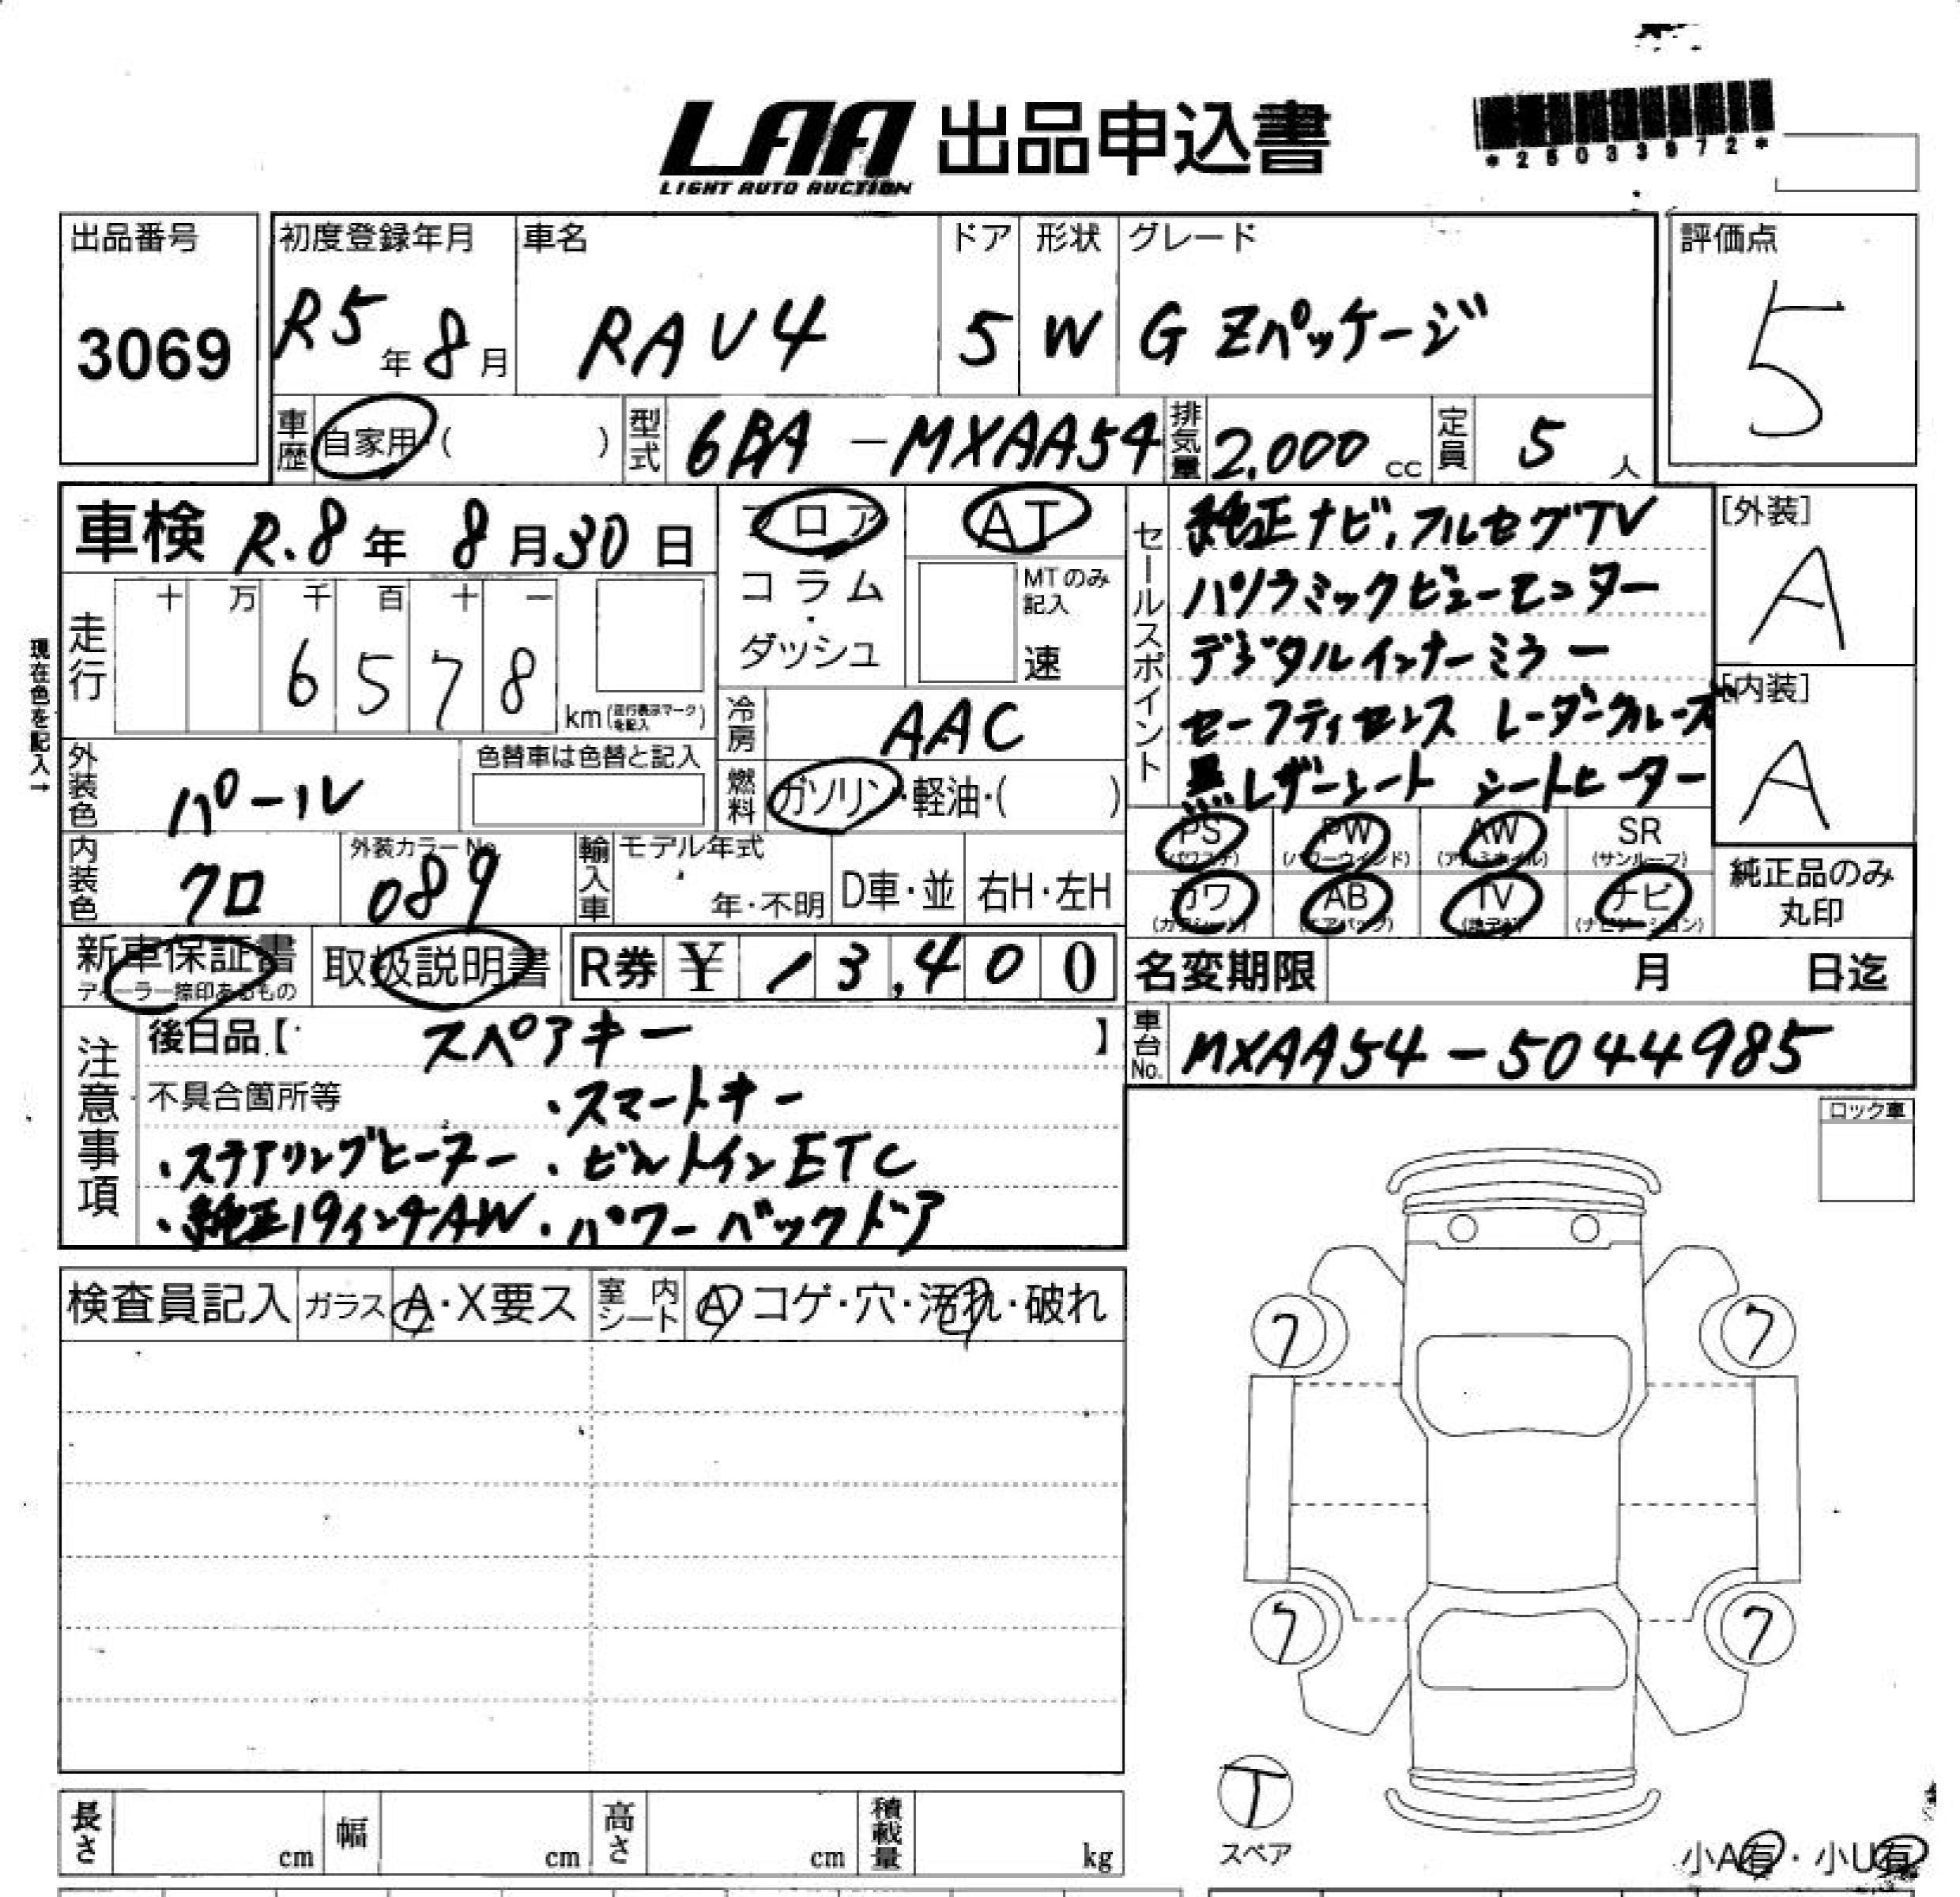 LAA 出品申込書
LIGHT AUTO AUCTION
*25033972*
出品番号
3069
初度登録年月
R5年8月
車名
RAV4
ドア
5
形状
W
グレード
G Zパッケージ
評価点
5
車歴 自家用・( )
型式 6BA-MXAA54
排気量 2,000cc
定員 5人
車検 R.8年8月30日
現在色を記入→
走行
十 万 千 百 十 一
6 5 7 8
km(走行表示マークを記入)
外装色 パール
色替車は色替と記入
内装色 クロ
外装カラーNo.
089
フロア
コラム
・
ダッシュ
AT
MTのみ記入
速
冷房 AAC
燃料 ガソリン・軽油・( )
輸入車
モデル年式
年・不明
D車・並
右H・左H
セールスポイント
純正ナビ、フルセグTV
パノラミックビューモニター
デジタルインナーミラー
セーフティセンス レーダークルーズ
黒レザーシート シートヒーター
[外装]
A
[内装]
A
PS PW AW SR
(パワステ) (パワーウインド) (アルミホイル) (サンルーフ)
カワ AB TV ナビ
(カワシート) (エアバック) (ナビゲーション)
純正品のみ
丸印
新車保証書
ディーラー捺印あるもの
取扱説明書
R券 ¥ 13,400
名変期限 月 日迄
車台No. MXAA54-5044985
注意事項
後日品【 スペアキー 】
不具合箇所等 ・スマートキー
・ステアリングヒーター ・ビルトインETC
・純正19インチAW ・パワーバックドア
ロック車
検査員記入
ガラス A・X要ス
室内シート A コゲ・穴・汚れ・破れ
7 7
7 7
T
スペア
小A有・小U有
長さ cm
幅 cm
高さ cm
積載量 kg